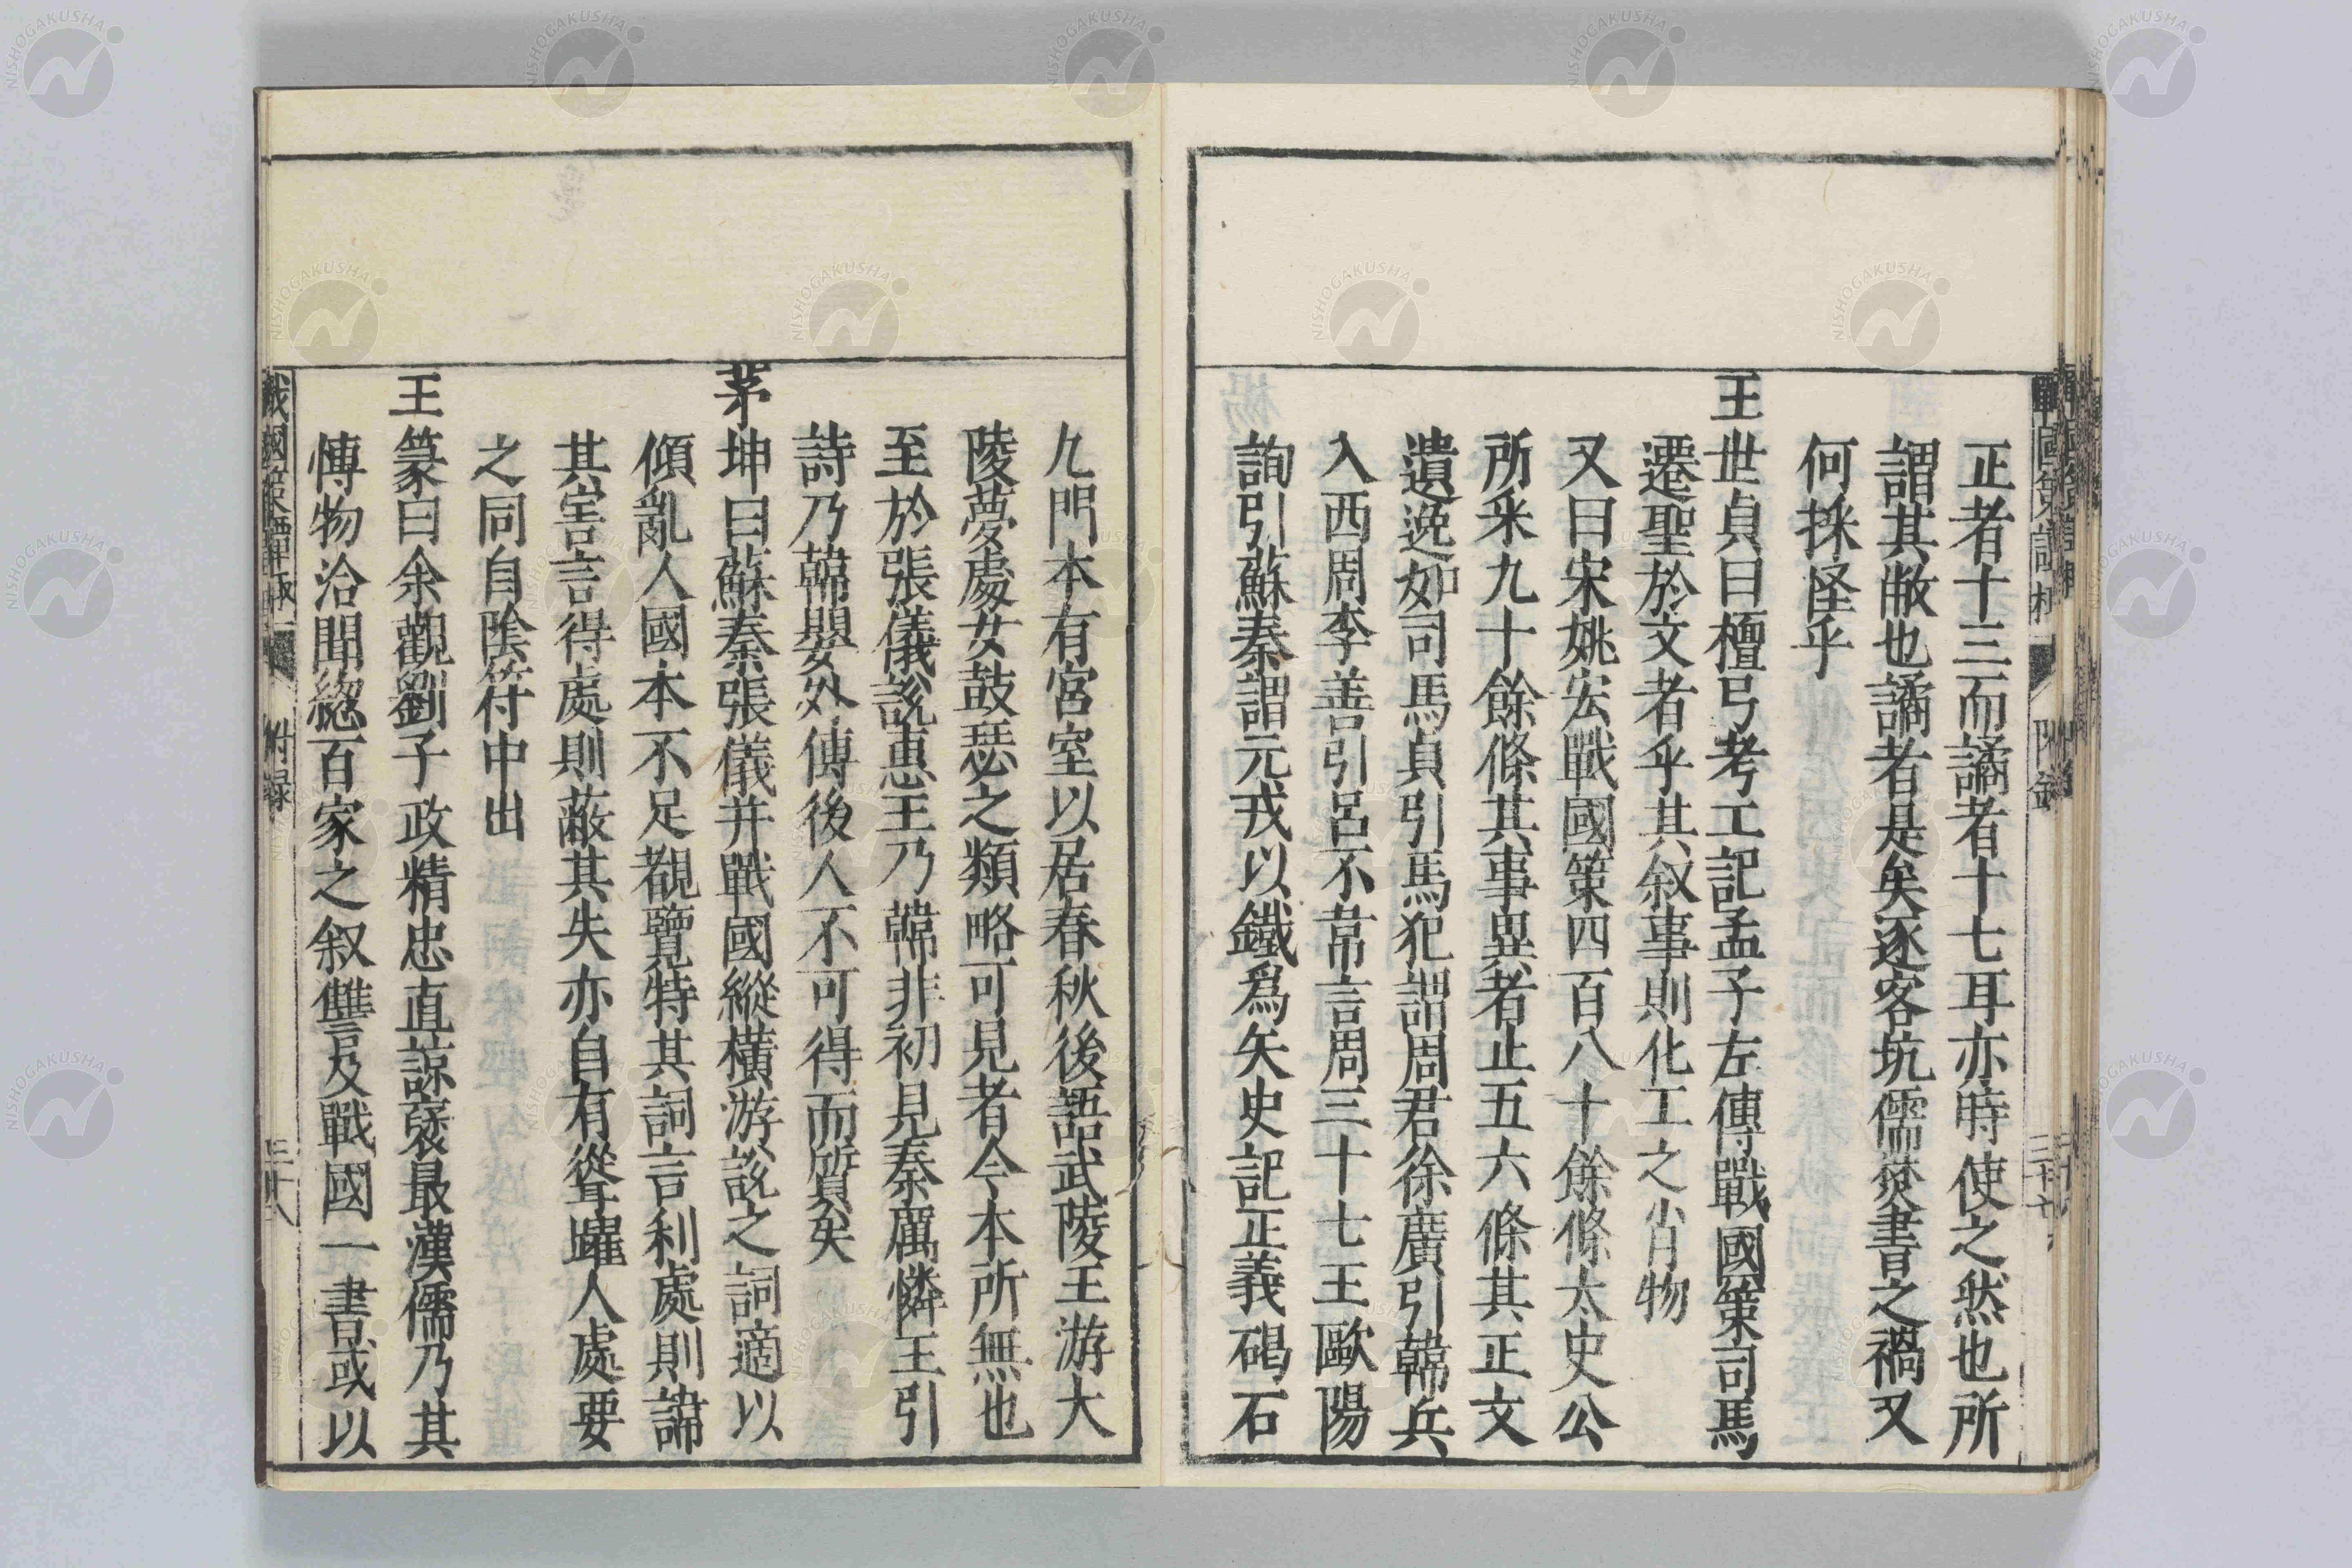 正者十三而譎者十七耳亦時使之然也所
謂其敝也譎者是矣逐客坑儒焚書之禍又
何採怪乎
王世貞曰檀弓考工記孟子左傳戰國策司馬
遷聖於文者乎其叙事則化工之肖物
又曰宋姚宏戰國策四百八十餘條太史公
所采九十餘條其事異者止五六條其正文
遺逸如司馬貞引馬犯謂周君徐廣引韓兵
入西周李善引呂不韋言周三十七王歐陽
詢引蘇秦謂元戎以鐵爲矢史記正義碣石
九門本有宮室以居春秋後語武陵王游大
陵夢處女鼓瑟之類略可見者今本所無也
至於張儀說惠王乃韓非初見秦厲憐王引
詩乃韓嬰外傳後人不可得而質矣
茅坤曰蘇秦張儀并戰國縱橫游說之詞適以
傾亂人國本不足觀覽特其詞言利處則諱
其害言得處則蔽其失亦自有聳躍人處要
之同自陰符中出
王篆曰余觀劉子政精忠直諒裦最漢儒乃其
愽物洽聞緫百家之叙讐及戰國一書或以
戰國策譚棷
附録
三十八